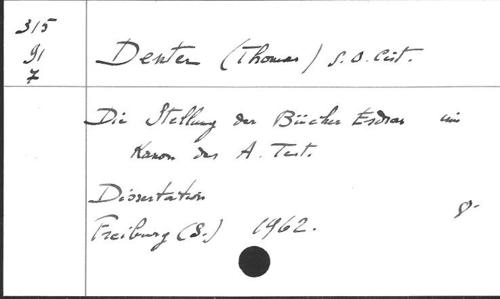 315
91
7
Denter (Thomas) S. O. Cist.
Die Stellung der Bücher Esdras im
Kanon des A. Test.
Dissertation
Freiburg (S.) 1962.
8.